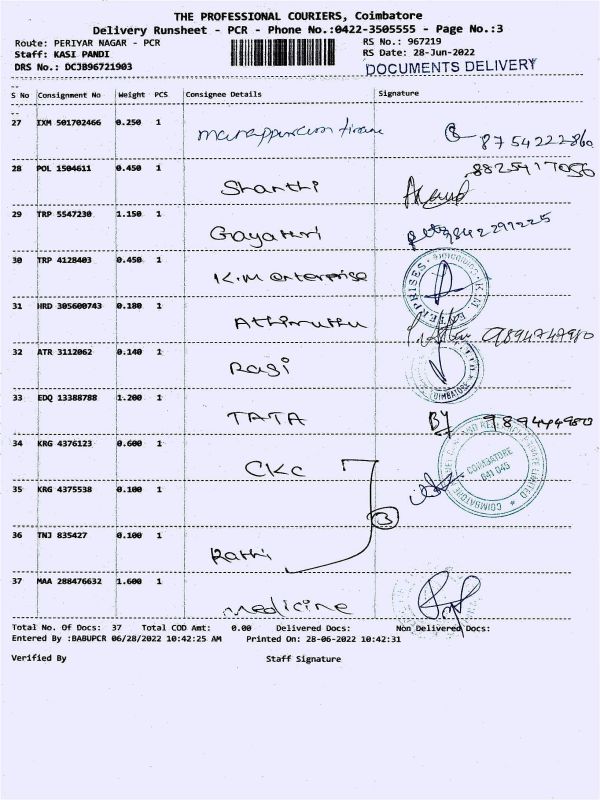 THE PROFESSIONAL COURIERS, Coimbatore
Delivery Runsheet - PCR - Phone No.:0422-3505555 - Page No.:3
Route: PERIYAR NAGAR - PCR RS No.: 967219
Staff: KASI PANDI RS Date: 28-Jun-2022
DRS No.: DCJB96721903 DOCUMENTS DELIVERY
S No Consignment No Weight PCS Consignee Details Signature
27 IXM 501702466 0.250 1 8754222860
28 POL 1504611 0.450 1 Shanthi 8825917056
29 TRP 5547230 1.150 1 Gayathri 9842291225
30 TRP 4128403 0.450 1 K.M enterprise
31 HRD 305600743 0.180 1 9894747980
32 ATR 3112062 0.140 1 Rasi
33 EDQ 13388788 1.200 1 TATA
34 KRG 4376123 0.600 1 CKC COIMBATORE 641 045
35 KRG 4375538 0.100 1 3
36 TNJ 835427 0.100 1 Rathi
37 MAA 288476632 1.600 1 medicine
Total No. Of Docs: 37 Total COD Amt: 0.00 Delivered Docs: Non Delivered Docs:
Entered By :BABUPCR 06/28/2022 10:42:25 AM Printed On: 28-06-2022 10:42:31
Verified By Staff Signature